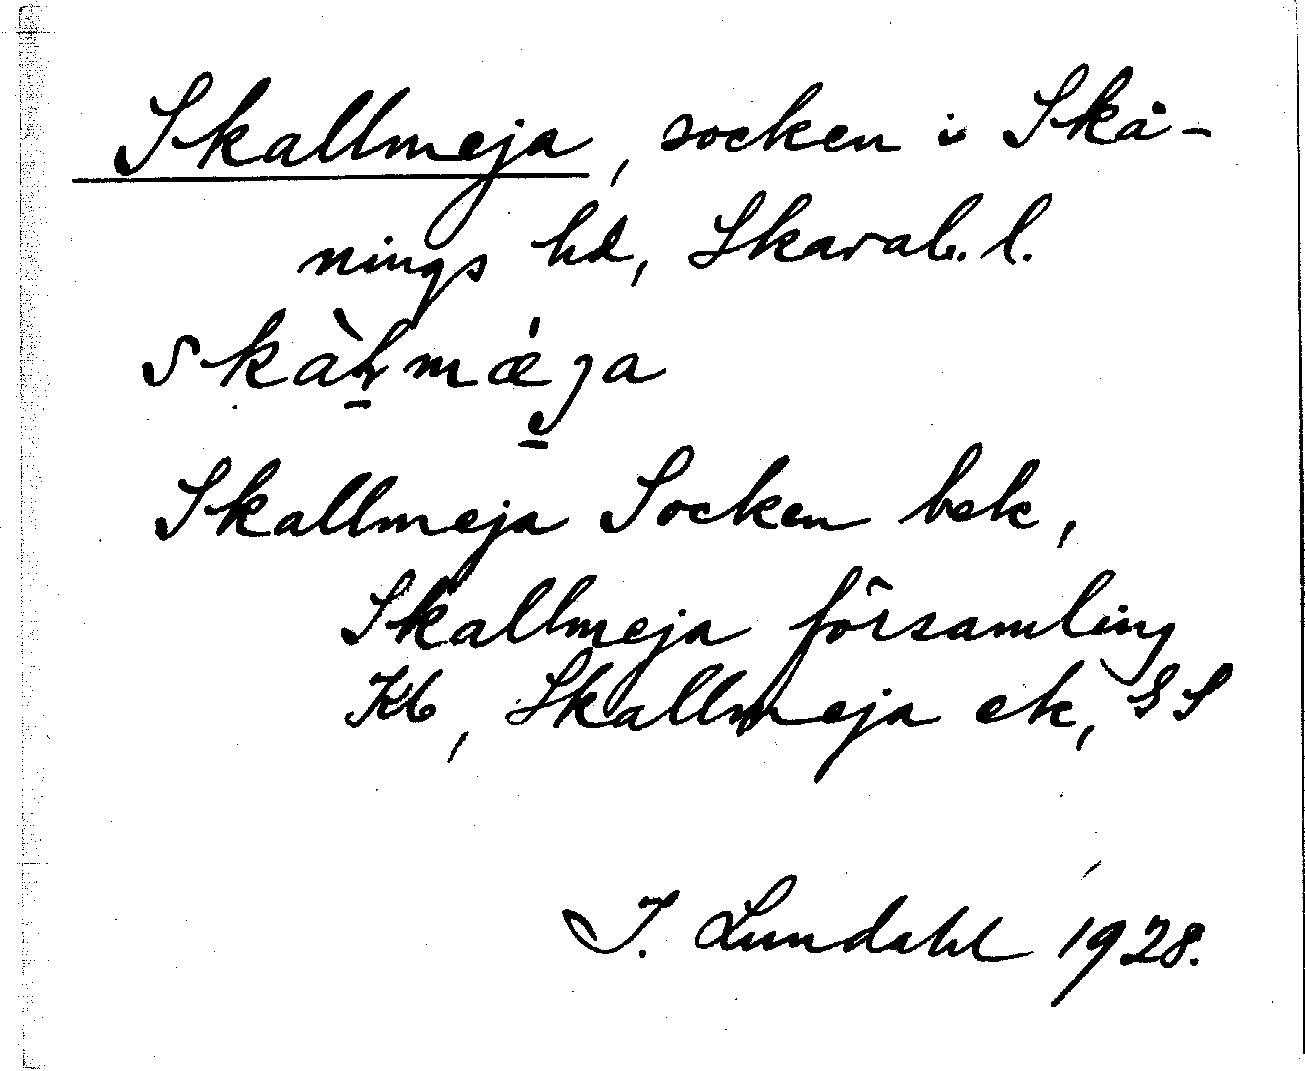 Skallmeja, socken i Skå-
nings hd, Skarab. l.
skàl̥mǽja
Skallmeja Socken bek,
Skallmeja församling
Kb, Skallmeja ek, SS
I. Lundahl 1928.